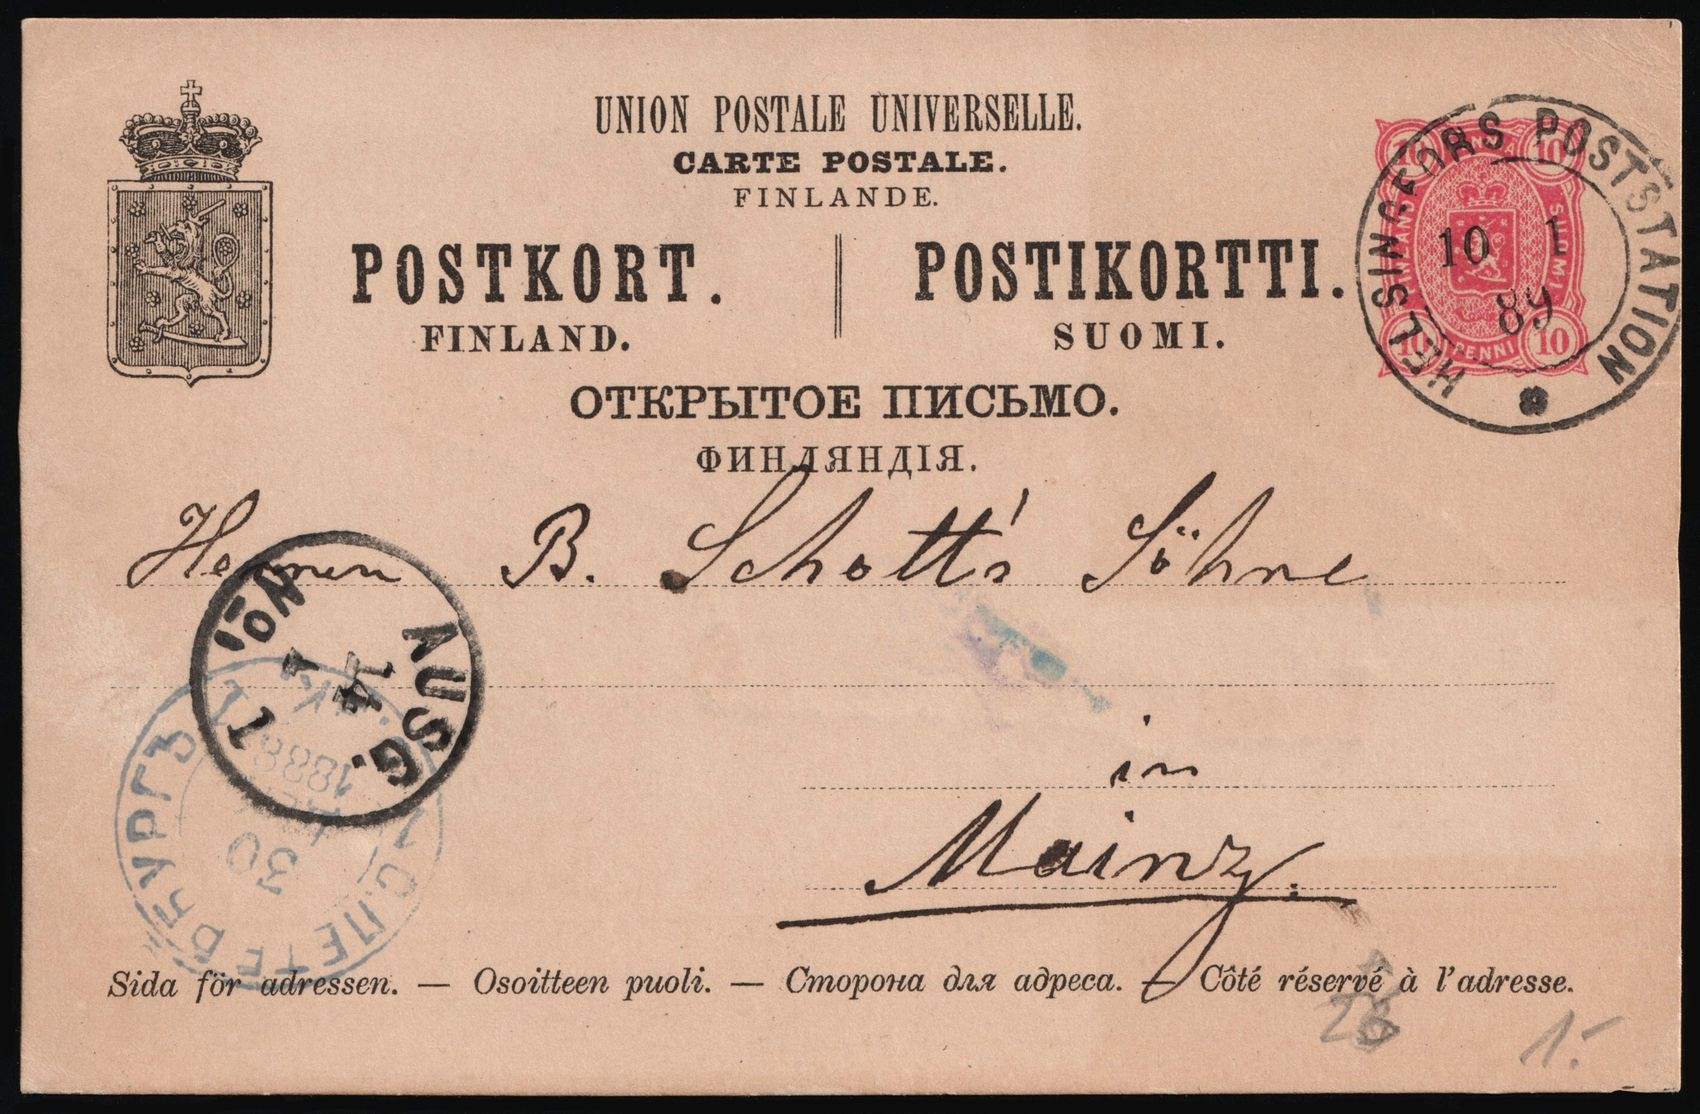 UNION POSTALE UNIVERSELLE.
CARTE POSTALE.
FINLANDE.
POSTKORT. POSTIKORTTI.
FINLAND. SUOMI.
ОТКРЫТОЕ ПИСЬМО.
ФИНЛЯНДІЯ.
10 10
SUOMI
10 PENNI 10
HELSINGFORS POSTSTATION
10 1
89
Herren B. Schott's Söhne
in
Mainz.
AUSG.
No 1
14
1
1
С.ПЕТЕРБУРГЪ
30
1888
Sida för adressen. — Osoitteen puoli. — Сторона для адреса. — Côté réservé à l'adresse.
28
1.-